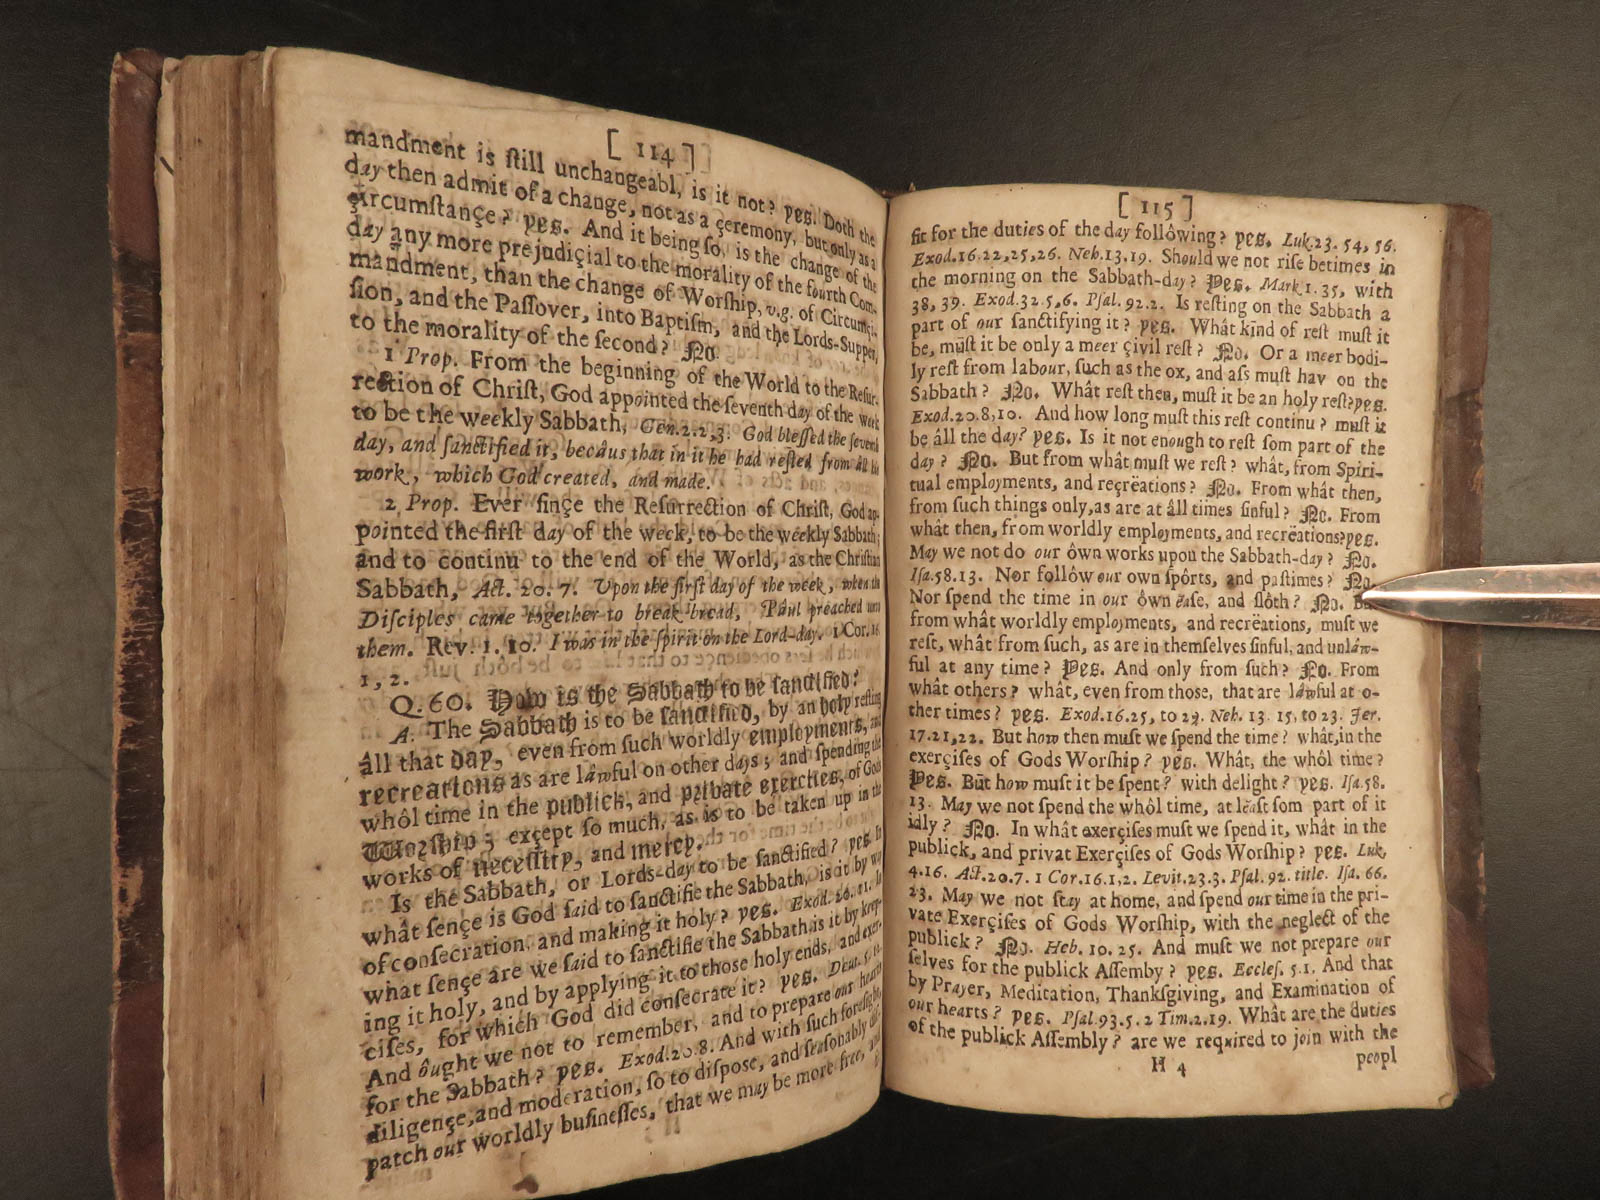 [ 114 ]
mandment is ſtill unchangeabl, is it not? yes. Doth the
day then admit of a change, not as a çeremony, but only as a
çircumſtançe? yes. And it being ſo, is the change of the
day any more prejudiçial to the morality of the fourth Com-
mandment, than the change of Worſhip, v.g. of Circumçi-
ſion, and the Paſſover, into Baptiſm, and the Lords-Supper,
to the morality of the ſecond? No.
1 Prop. From the beginning of the World to the Reſur-
rection of Chriſt, God appointed the ſeventh day of the week
to be the weekly Sabbath, Gen.2.2,3. God bleſſed the ſeventh
day, and ſanctified it, becâus that in it he had reſted from âll his
work, which God created, and made.
2 Prop. Ever ſinçe the Reſurrection of Chriſt, God ap-
pointed the firſt day of the week, to be the weekly Sabbath;
and to continu to the end of the World, as the Chriſtian
Sabbath, Act. 20. 7. Upon the firſt day of the week, when the
Diſciples came together to break bread, Pâul preached unto
them. Rev. 1. 10. I was in the ſpirit on the Lord-day. 1 Cor. 16
1, 2.
Q. 60. How is the Sabbath to be ſanctified?
A. The Sabbath is to be ſanctified, by an holy reſting
âll that day, even from ſuch worldly employments, and
recreations as are lâwful on other days; and ſpending the
whôl time in the publick, and private exerciſes, of Gods
Worſhip; exçept ſo much, as is to be taken up in the
works of neceſſity, and mercy.
Is the Sabbath, or Lords-day to be ſanctified? yes. In
whât ſençe is God ſaid to ſanctifie the Sabbath, is it by way
of conſecration, and making it holy? yes. Exod. 20. 11. In
what ſençe are we ſaid to ſanctifie the Sabbath, is it by keep-
ing it holy, and by applying it to thoſe holy ends, and exer-
ciſes, for which God did conſecrate it? yes. Deut. 5. 12.
And ôught we not to remember, and to prepare our hearts
for the Sabbath? yes. Exod.20.8. And with ſuch foreſight,
diligençe, and moderation, ſo to diſpoſe, and ſeaſonably diſ-
patch our worldly buſineſſes, that we may be more free, and
[ 115 ]
fit for the duties of the day following? yes. Luk.23. 54, 56.
Exod.16.22,25,26. Neh.13.19. Should we not riſe betimes in
the morning on the Sabbath-day? Yes. Mark 1.35, with
38, 39. Exod.32.5,6. Pſal. 92.2. Is reſting on the Sabbath a
part of our ſanctifying it? yes. Whât kind of reſt muſt it
be, muſt it be only a meer çivil reſt? No. Or a meer bodi-
ly reſt from labour, ſuch as the ox, and aſs muſt hav on the
Sabbath? No. Whât reſt then, muſt it be an holy reſt? yes.
Exod.20.8,10. And how long muſt this reſt continu? muſt it
be âll the day? yes. Is it not enough to reſt ſom part of the
day? No. But from whât muſt we reſt? whât, from Spiri-
tual employments, and reçrëations? No. From whât then,
from ſuch things only, as are at âll times ſinful? No. From
whât then, from worldly employments, and recrëations? yes.
May we not do our ôwn works upon the Sabbath-day? No.
Iſa.58.13. Nor follow our own ſpôrts, and paſtimes? No.
Nor ſpend the time in our ôwn eaſe, and ſlôth? No. But
from whât worldly employments, and recrëations, muſt we
reſt, whât from ſuch, as are in themſelves ſinful, and unlâw-
ful at any time? Yes. And only from ſuch? No. From
whât others? whât, even from thoſe, that are lâwful at o-
ther times? yes. Exod.16.25, to 29. Neh. 13. 15, to 23. Jer.
17.21,22. But how then muſt we ſpend the time? whât, in the
exerçiſes of Gods Worſhip? yes. Whât, the whôl time?
Yes. But how muſt it be ſpent? with delight? yes. Iſa.58.
13. May we not ſpend the whôl time, at leaſt ſom part of it
idly? No. In whât exerçiſes muſt we ſpend it, whât in the
publick, and privat Exerçiſes of Gods Worſhip? yes. Luk,
4.16. Act.20.7. 1 Cor.16.1,2. Levit.23.3. Pſal. 92. title. Iſa. 66.
23. May we not ſtay at home, and ſpend our time in the pri-
vate Exerçiſes of Gods Worſhip, with the neglect of the
publick? No. Heb. 10. 25. And muſt we not prepare our
ſelves for the publick Aſſemby? yes. Eccleſ. 5.1. And that
by Prayer, Meditation, Thankſgiving, and Examination of
our hearts? yes. Pſal.93.5. 2 Tim.2.19. What are the duties
of the publick Aſſembly? are we required to join with the
H 4 peopl